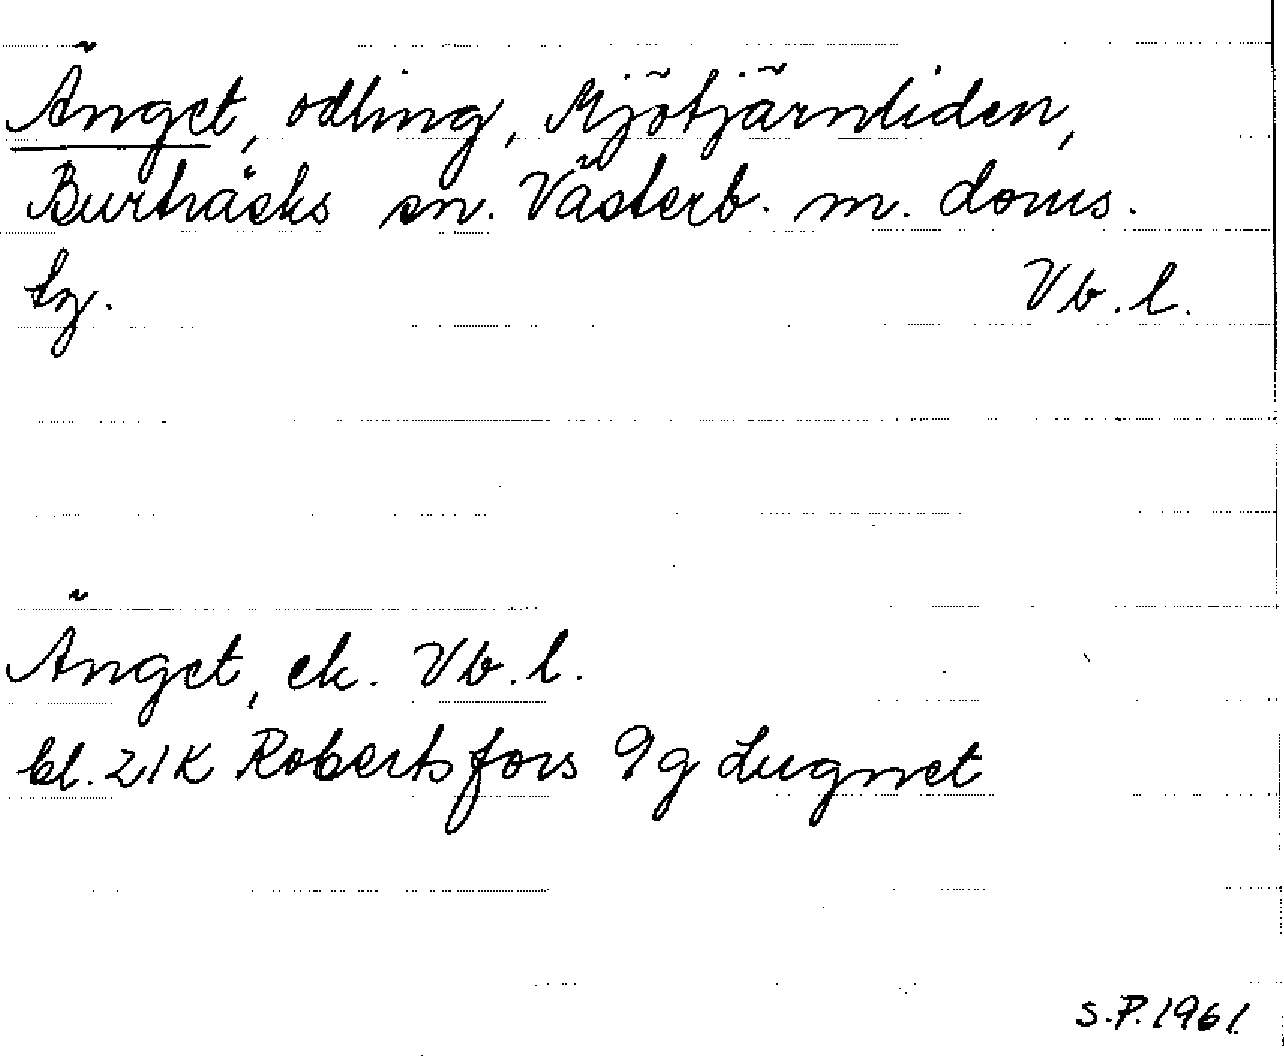 Änget, odling, Mjötjärnliden,
Burträsks sn. Västerb. m. doms.
tg. Vb. l.
Änget, ek. Vb. l.
bl. 21K Robertsfors 9g Lugnet
S.P. 1961.